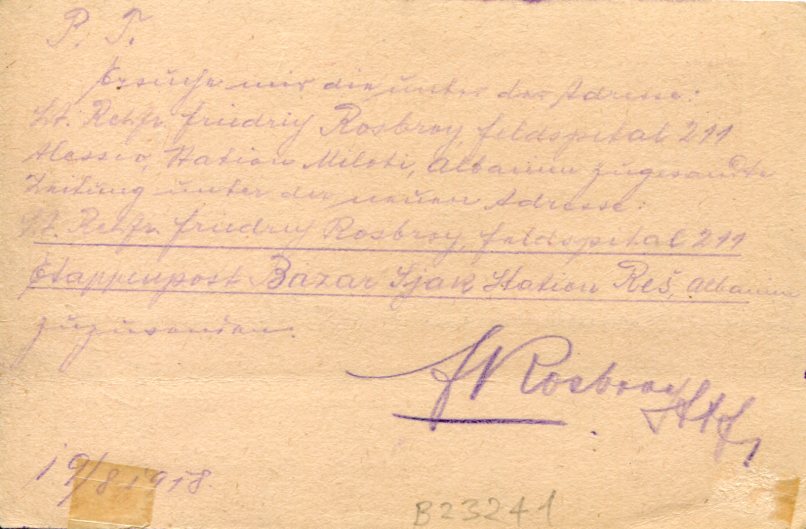 P. T.
Ersuche mir die unter der Adresse:
Friedrich Rosbroy, Feldspital 211
Alessio, Station Miloti, Albanien zugesandte
Zeitung unter der neuen Adresse:
Friedrich Rosbroy, Feldspital 211
Etappenpost Bazar Sjak Station Reš, Albanien
zuzusenden.
Rosbroy
19/8 1918.
B23241